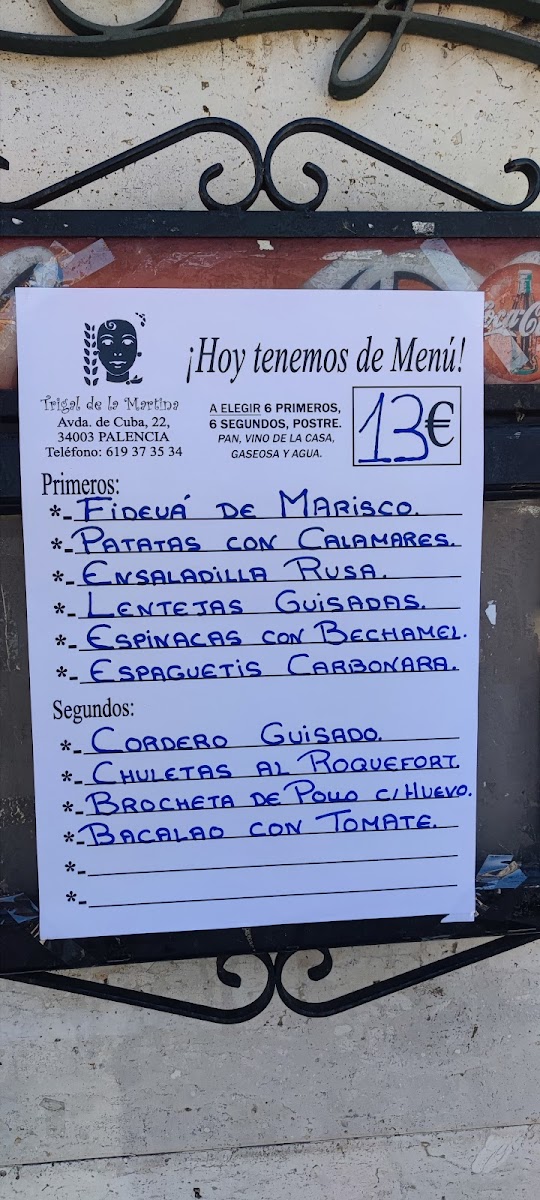 ¡Hoy tenemos de Menú!
Trigal de la Martina
Avda. de Cuba, 22,
34003 PALENCIA
Teléfono: 619 37 35 34
A ELEGIR 6 PRIMEROS,
6 SEGUNDOS, POSTRE.
PAN, VINO DE LA CASA,
GASEOSA Y AGUA.
13€
Primeros:
*- FIDEUÁ DE MARISCO.
*- PATATAS CON CALAMARES.
*- ENSALADILLA RUSA.
*- LENTEJAS GUISADAS.
*- ESPINACAS CON BECHAMEL.
*- ESPAGUETIS CARBONARA.
Segundos:
*- CORDERO GUISADO.
*- CHULETAS AL ROQUEFORT.
*- BROCHETA DE POLLO C/HUEVO.
*- BACALAO CON TOMATE.
*-
*-
Coca-C